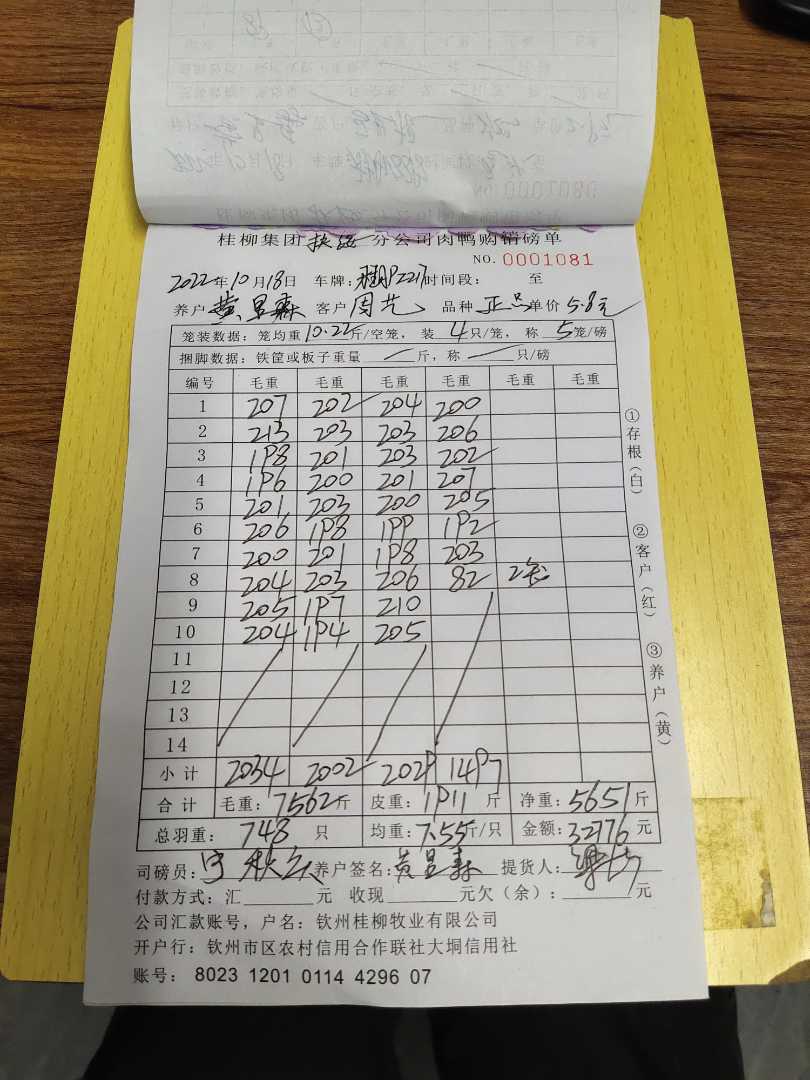 桂柳集团 分公司肉鸭购销磅单
NO. 0001081
2022年10月18日 车牌: P2217 时间段: 至
养户 黄 森 客户 周 品种 正品 单价 5.8元
笼装数据: 笼均重10.22斤/空笼, 装4只/笼, 称5笼/磅
捆脚数据: 铁筐或板子重量 斤, 称 只/磅
编号 毛重 毛重 毛重 毛重 毛重 毛重
1 207 202 204 200
2 213 203 203 206
3 198 201 203 202
4 196 200 201 207
5 201 203 200 205
6 206 198 199 192
7 200 201 198 203
8 204 203 206 82 2
9 205 197 210
10 204 194 205
11
12
13
14
小计 2034 2002 2029 1497
合计 毛重: 7562斤 皮重: 1911斤 净重: 5651斤
总羽重: 748只 均重: 7.55斤/只 金额: 32776元
司磅员: 养户签名: 黄 森 提货人:
付款方式: 汇 元 收现 元欠(余): 元
公司汇款账号, 户名: 钦州桂柳牧业有限公司
开户行: 钦州市区农村信用合作联社大垌信用社
账号: 8023 1201 0114 4296 07
①存根(白)
②客户(红)
③养户(黄)